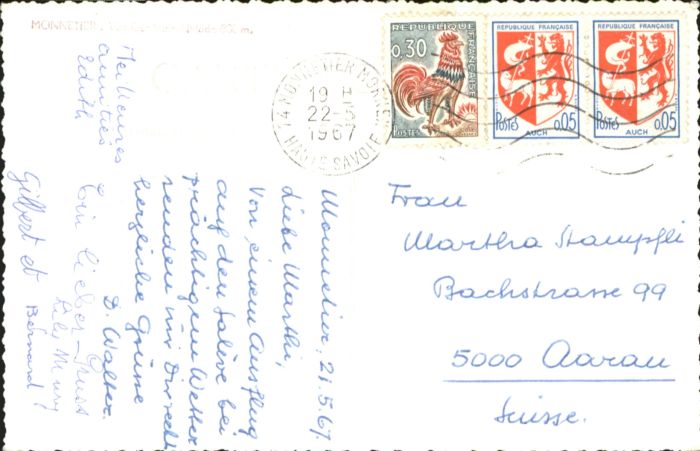 MONNETIER
RÉPUBLIQUE FRANÇAISE
0,30
POSTES
RÉPUBLIQUE FRANÇAISE
POSTES
AUCH
0,05
RÉPUBLIQUE FRANÇAISE
POSTES
AUCH
0,05
74 MONNETIER MORNEX
19 H
22-5
1967
HAUTE SAVOIE
Monnetier, 21.5.67.
Liebe Marthi,
Von einem Ausflug
auf den Salève bei
prächtigem Wetter
senden wir Dir recht
herzliche Grüsse
D. Walter.
Ein lieber Gruss
Meilleures
amitiés
Edith
Gilbert et
Bernard!
Frau
Martha Stampfli
Bachstrasse 99
5000 Aarau
Suisse.